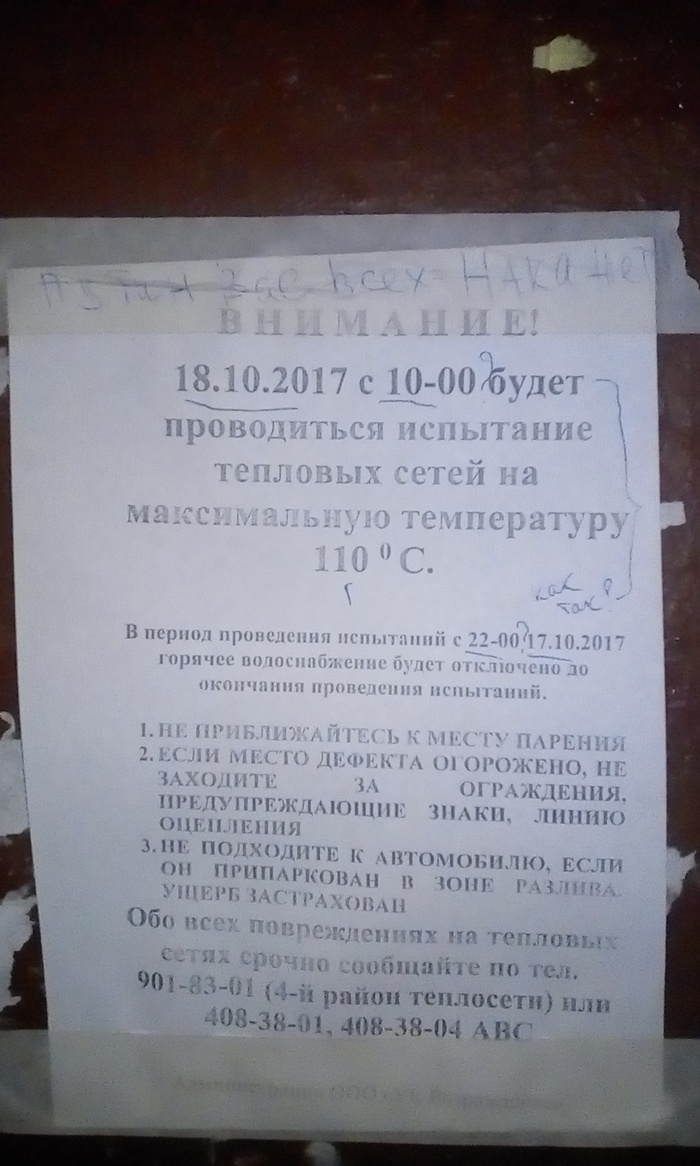 всех НАКАжет!!
ВНИМАНИЕ!
18.10.2017 с 10-00 ? будет
проводиться испытание
тепловых сетей на
максимальную температуру
110 ⁰ С.
как
так?
В период проведения испытаний с 22-00 ? 17.10.2017
горячее водоснабжение будет отключено до
окончания проведения испытаний.
1. НЕ ПРИБЛИЖАЙТЕСЬ К МЕСТУ ПАРЕНИЯ
2. ЕСЛИ МЕСТО ДЕФЕКТА ОГОРОЖЕНО, НЕ
ЗАХОДИТЕ ЗА ОГРАЖДЕНИЯ,
ПРЕДУПРЕЖДАЮЩИЕ ЗНАКИ, ЛИНИЮ
ОЦЕПЛЕНИЯ
3. НЕ ПОДХОДИТЕ К АВТОМОБИЛЮ, ЕСЛИ
ОН ПРИПАРКОВАН В ЗОНЕ РАЗЛИВА.
УЩЕРБ ЗАСТРАХОВАН
Обо всех повреждениях на тепловых
сетях срочно сообщайте по тел.
901-83-01 (4-й район теплосети) или
408-38-01, 408-38-04 АВС
Администрация ООО